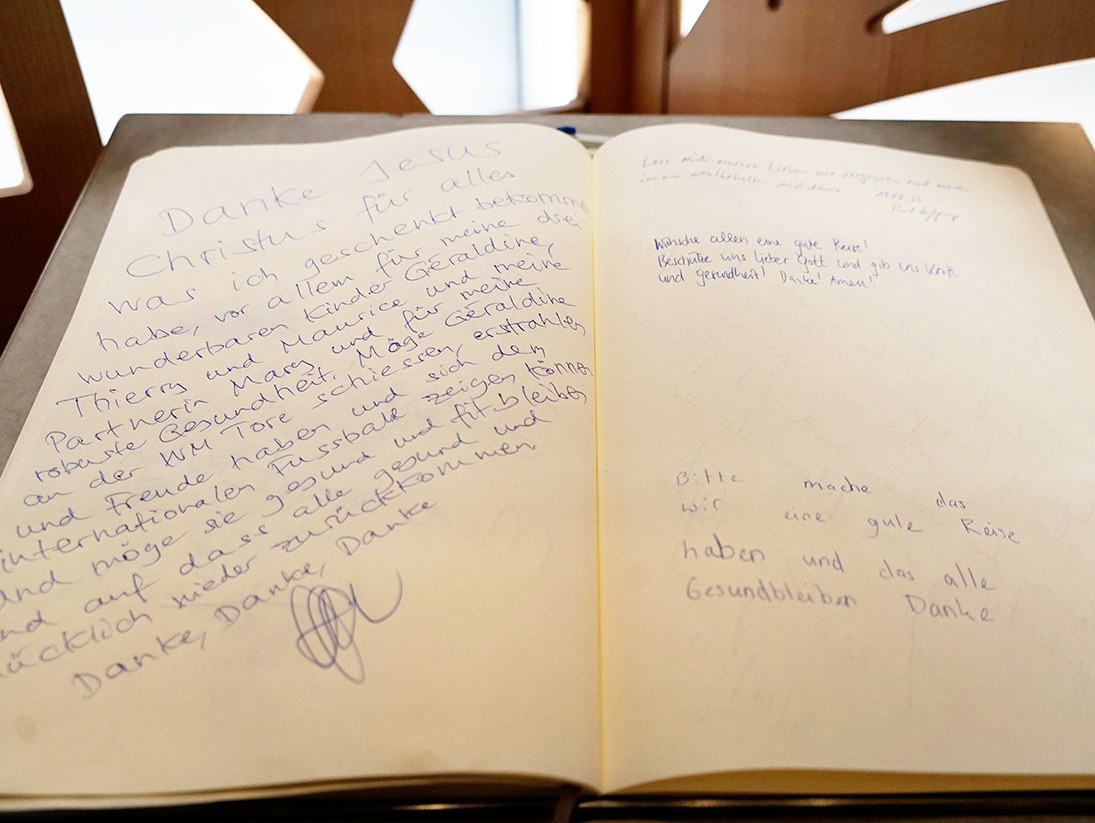 Danke Jesus
Christus für alles
was ich geschenkt bekomme
habe, vor allem für meine drei
wunderbaren Kinder Géraldine,
Thierry und Maurice und meine
Partnerin Mary und für meine
robuste Gesundheit. Möge Géraldine
an der WM Tore schiessen, erstrahlen
und Freude haben und sich dem
internationalen Fussball zeigen können
und möge sie gesund und fit bleiben
und auf dass alle gesund und
glücklich wieder zurückkommen
Danke, Danke, Danke
Lass mich unsere Lieben nie vergessen und mich
immer wohlbehalten
Wünsche allen eine gute Reise!
Beschütze uns lieber Gott und gib uns Kraft
und gesundheit! Danke! Amen!
Bitte mache das
wir eine gute Reise
haben und das alle
Gesundbleiben Danke